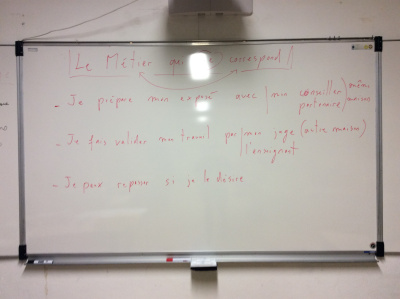 Le Métier qui me correspond
- Je prépare mon exposé avec mon conseiller même
partenaire maison
- Je fais valider mon travail par mon juge (autre maison)
l'enseignant
- Je peux repasser si je le désire